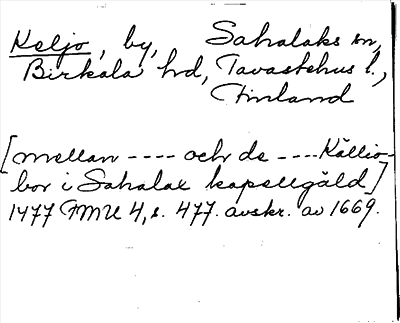 Keljo, by, Sahalaks sn,
Birkala hd, Tavastehus l.,
Finland
[mellan ---- och de ---- Källio-
bor i Sahalax kapellgäld]
1477 FMU 4, s. 477. avskr. av 1669.